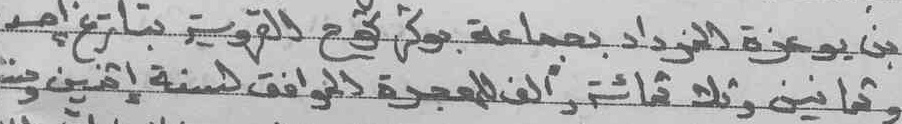 بن بوعزة المزداد بجماعة بوكركوح القروية بتاريخ إحد
وثمانين وثلاثمائة وألف للهجرة الموافق لسنة إثنين وستـ